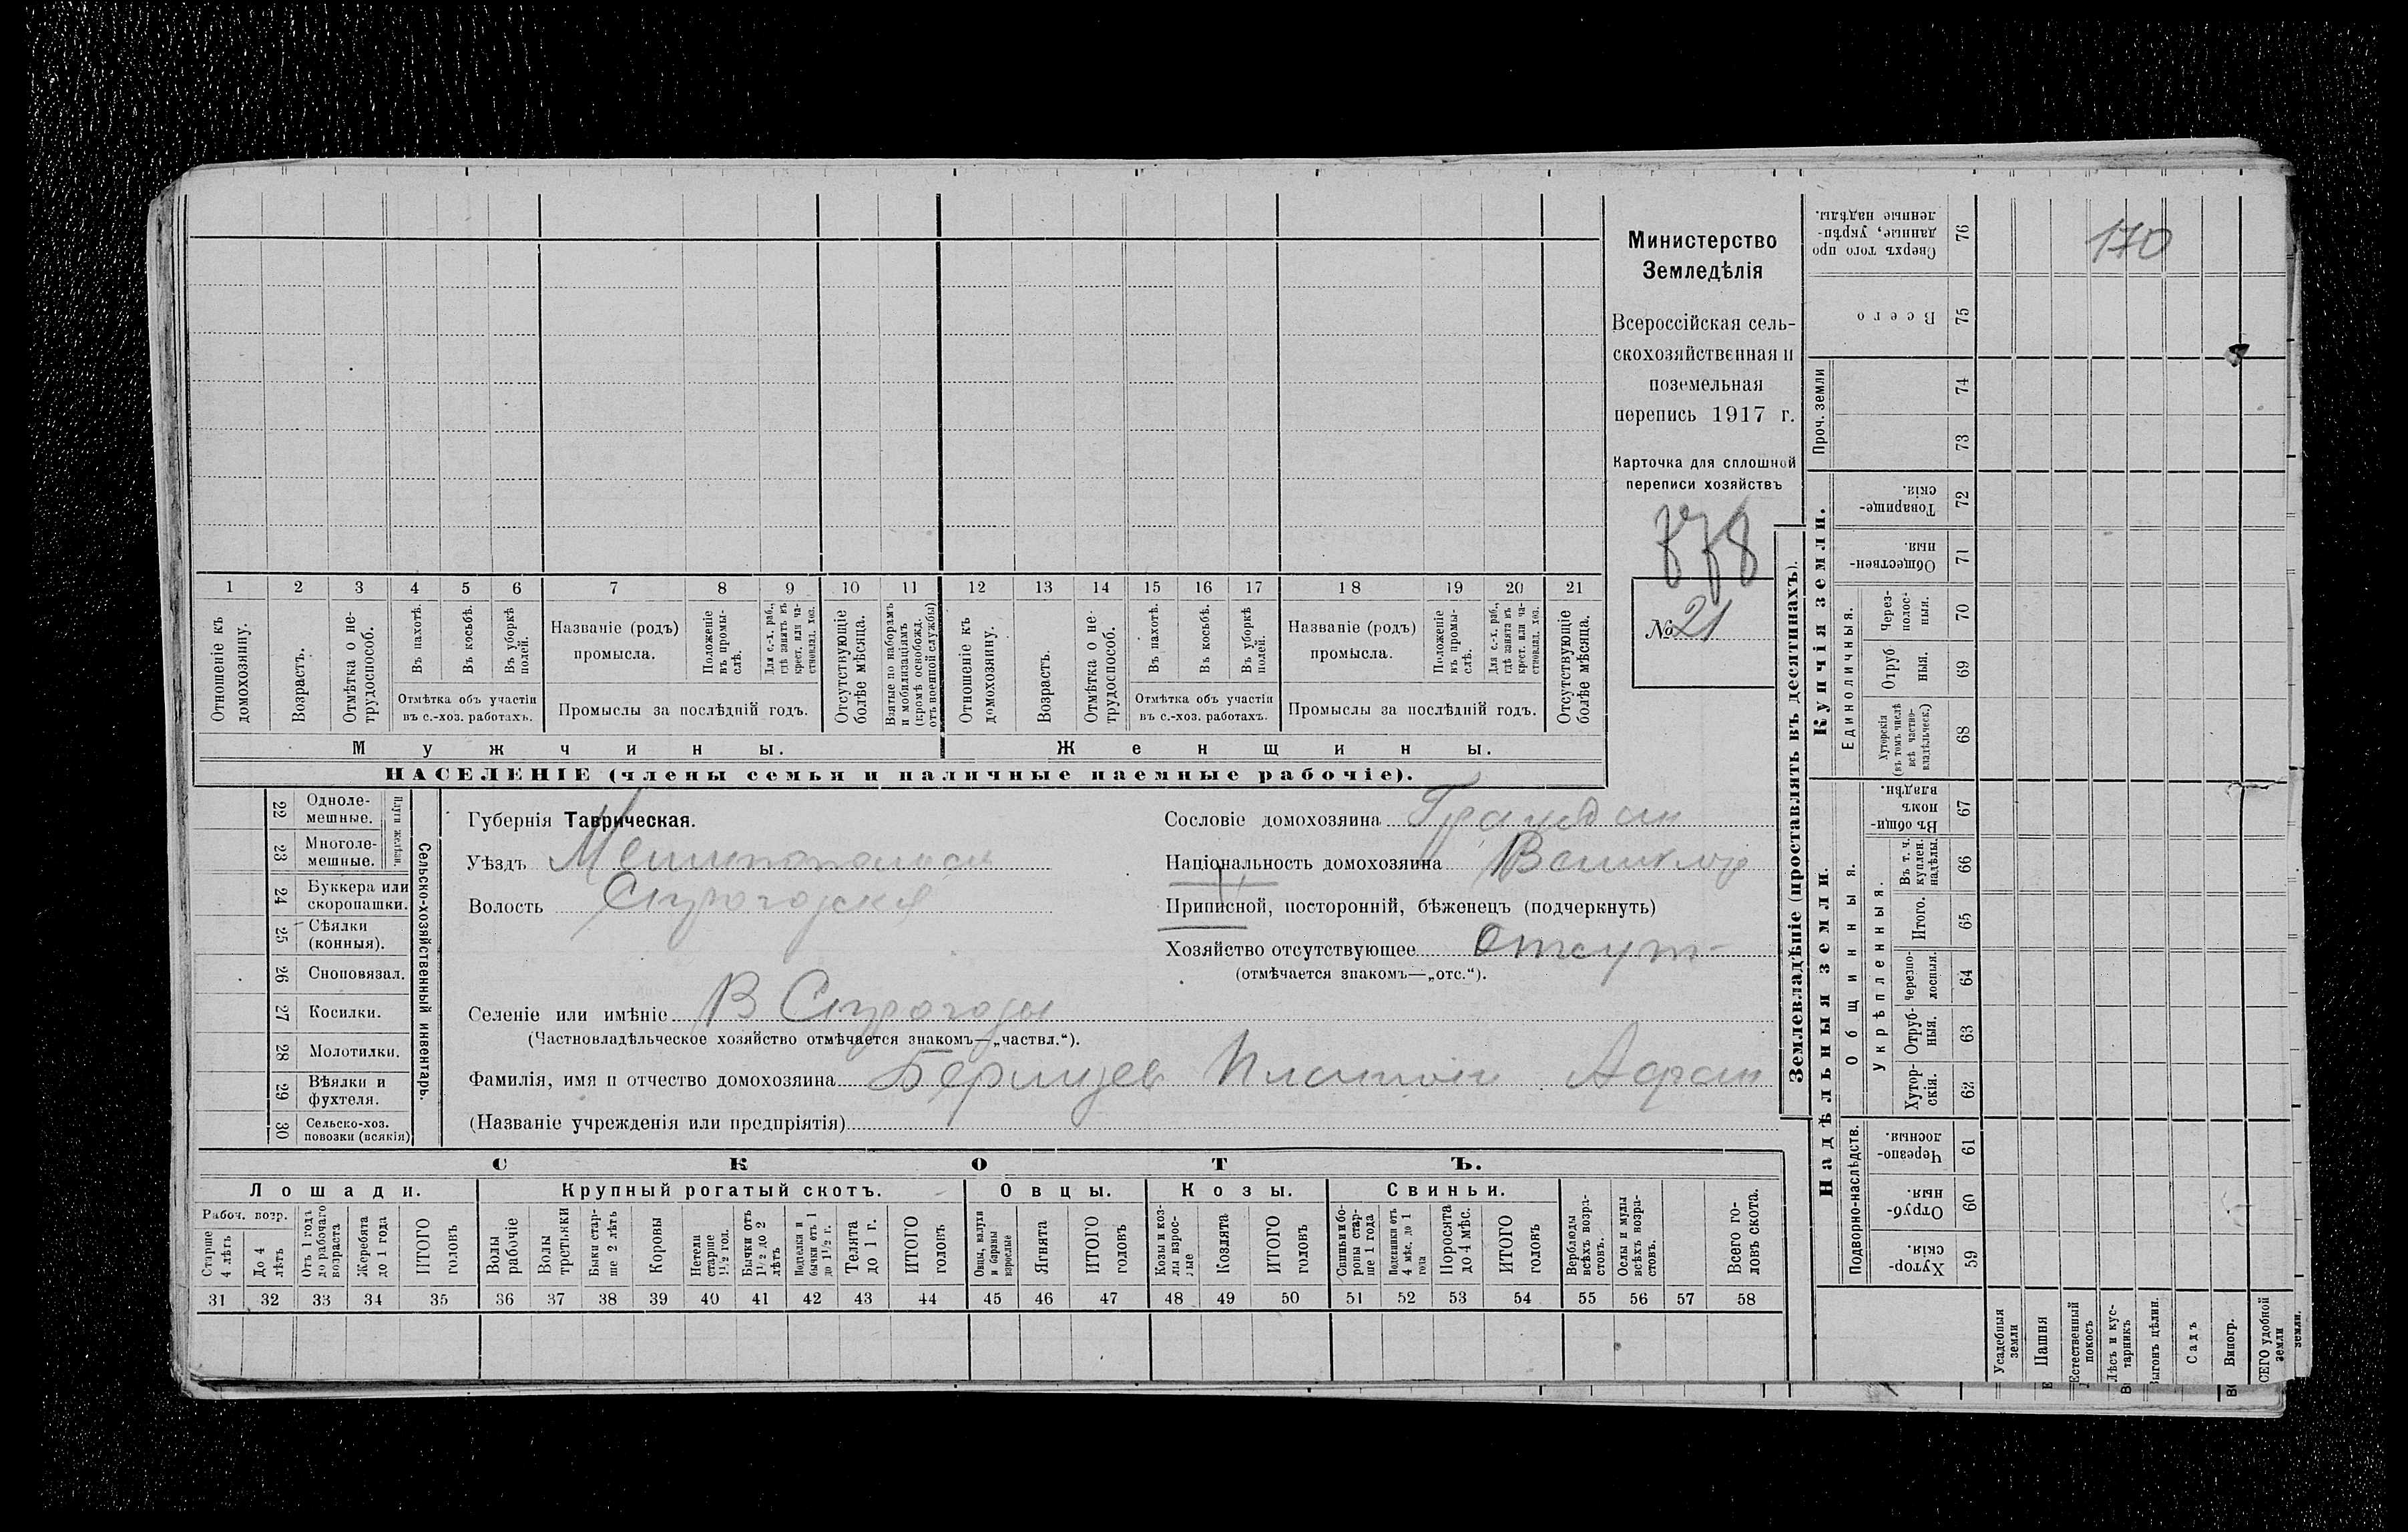 1 2 3 4 5 6 7 8 9 10 11 12 13 14 15 16 17 18 19 20 21
Отношеніе къ домохозяину.
Возрастъ.
Отмѣтка о нетрудоспособ.
Въ пахотѣ.
Въ косьбѣ.
Въ уборкѣ полей.
Отмѣтка объ участіи
въ с.-хоз. работахъ.
Названіе (родъ)
промысла.
Положеніе въ промыслѣ.
Для с.-х. раб., гдѣ занятъ въ крест. или частновлад. хоз.
Промыслы за послѣдній годъ.
Отсутствующіе болѣе мѣсяца.
Взятые по наборамъ и мобилизаціямъ (кромѣ освобожд. отъ военной службы)
Отношеніе къ домохозяину.
Возрастъ.
Отмѣтка о нетрудоспособ.
Въ пахотѣ.
Въ косьбѣ.
Въ уборкѣ полей.
Отмѣтка объ участіи
въ с.-хоз. работахъ.
Названіе (родъ)
промысла.
Положеніе въ промыслѣ.
Для с.-х. раб., гдѣ занята въ крест. или частновлад. хоз.
Промыслы за послѣдній годъ.
Отсутствующіе болѣе мѣсяца.
Мужчины. Женщины.
НАСЕЛЕНІЕ (члены семьи и наличные наемные рабочіе).
Министерство
Земледѣлія
Всероссійская сель-
скохозяйственная и
поземельная
перепись 1917 г.
Карточка для сплошной
переписи хозяйствъ
№ 21
22 Одноле-
мешные.
23 Многоле-
мешные.
24 Буккера или
скоропашки.
25 Сѣялки
(конныя).
26 Сноповязал.
27 Косилки.
28 Молотилки.
29 Вѣялки и
фухтеля.
30 Сельско-хоз.
повозки (всякія)
Сельско-хозяйственный инвентарь.
Губернія Таврическая.
Уѣздъ Мелитопольск
Волость Строгорская
Сословіе домохозяина Граждан
Національность домохозяина
Приписной, посторонній, бѣженецъ (подчеркнуть)
Хозяйство отсутствующее Отсут
(отмѣчается знакомъ—„отс.“).
Селеніе или имѣніе В
(Частновладѣльческое хозяйство отмѣчается знакомъ—„частвл.“).
Фамилія, имя и отчество домохозяина Платон
(Названіе учрежденія или предпріятія)
СКОТЪ.
Лошади. Крупный рогатый скотъ. Овцы. Козы. Свиньи.
Рабоч. возр.
Старше 4 лѣтъ
До 4 лѣтъ
Отъ 1 года до рабочаго возраста
Жеребята до 1 года
ИТОГО головъ
Волы рабочіе
Волы третьяки
Быки старше 2 лѣтъ
Коровы
Нетели старше 1½ год.
Бычки отъ 1½ до 2 лѣтъ
Подтелки и бычки отъ 1 до 1½ г.
Телята до 1 г.
ИТОГО головъ
Овцы, валухи и бараны взрослые
Ягнята
ИТОГО головъ
Козы и козлы взрослые
Козлята
ИТОГО головъ
Свиньи и боровы старше 1 года
Подсвинки отъ 4 мѣс. до 1 года
Поросята до 4 мѣс.
ИТОГО головъ
Верблюды всѣхъ возрастовъ.
Ослы и мулы всѣхъ возрастовъ.
Всего головъ скота.
31 32 33 34 35 36 37 38 39 40 41 42 43 44 45 46 47 48 49 50 51 52 53 54 55 56 57 58
Землевладѣніе (проставлять въ десятинахъ).
Надѣльныя земли. Купчія земли. Проч. земли
Подворно-наслѣдств.
Общинныя.
Укрѣпленныя.
Единоличныя.
59 Хутор-
скія.
60 Отруб-
ныя.
61 Черезпо-
лосныя.
62 Хутор-
скія.
63 Отруб-
ныя.
64 Черезпо-
лосныя.
65 Итого.
66 Въ т. ч.
куплен.
надѣлы.
67 Въ общи-
номъ
владѣн.
68 Хуторскія
(въ томъ числѣ
всѣ частно-
владѣльческ.)
69 Отруб
ныя.
70 Через-
полос-
ныя.
71 Обществен-
ныя.
72 Товарище-
скія.
73
74
75 Всего
76 Сверхъ того про
данные, укрѣп-
ленные надѣлы.
170
Усадебныя земли
Пашня
Естественный покосъ
Лѣсъ и кус-
тарникъ
Выгонъ цѣлин.
Садъ
Виногр.
земли